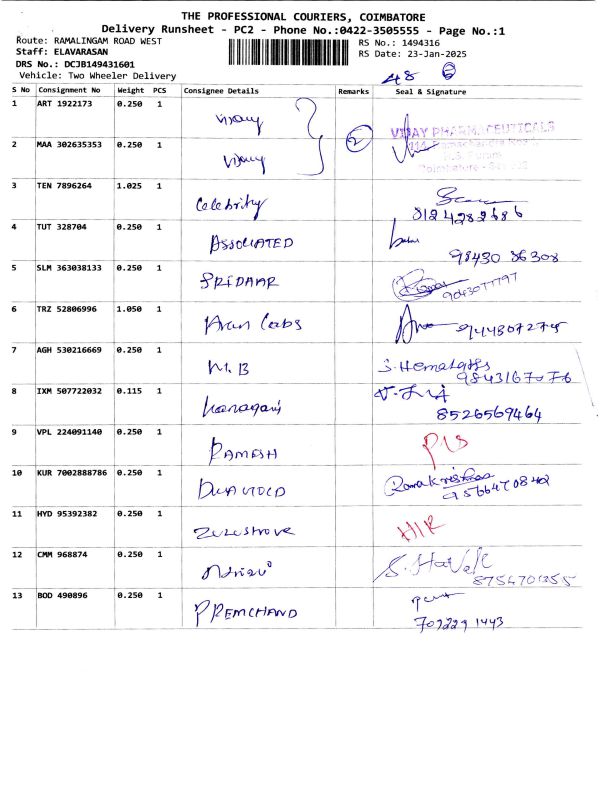 THE PROFESSIONAL COURIERS, COIMBATORE
Delivery Runsheet - PC2 - Phone No.:0422-3505555 - Page No.:1
Route: RAMALINGAM ROAD WEST
RS No.: 1494316
Staff: ELAVARASAN
RS Date: 23-Jan-2025
DRS No.: DCJB149431601
Vehicle: Two Wheeler Delivery
48 6
S No Consignment No Weight PCS Consignee Details Remarks Seal & Signature
1 ART 1922173 0.250 1 Vijay
2 MAA 302635353 0.250 1 Vijay 2 VIJAY PHARMACEUTICALS
3 TEN 7896264 1.025 1 Celebrity
4 TUT 328704 0.250 1 ASSOCIATED 98430 86308
5 SLM 363038133 0.250 1 SRIDAAR 9043077797
6 TRZ 52806996 1.050 1 Arun Labs
7 AGH 530216669 0.250 1 M.B 9843167076
8 IXM 507722032 0.115 1 8526569464
9 VPL 224091140 0.250 1 RAMESH
10 KUR 7002888786 0.250 1 Ramakrishnan 9566470842
11 HYD 95392382 0.250 1
12 CMM 968874 0.250 1 8754701355
13 BOD 490896 0.250 1 PREMCHAND